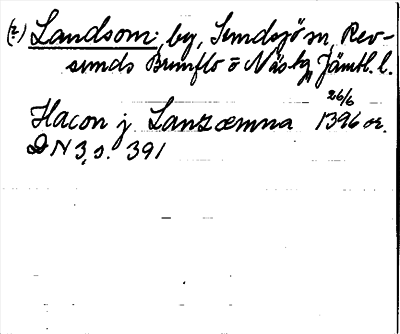 (z) Landsom, by, Sundsjö sn, Rev-
sunds Brunflo o Näs tg, Jämtl. l.
26/6
Hacon j Lanzæmna 1396 or.
DN 3, s. 391